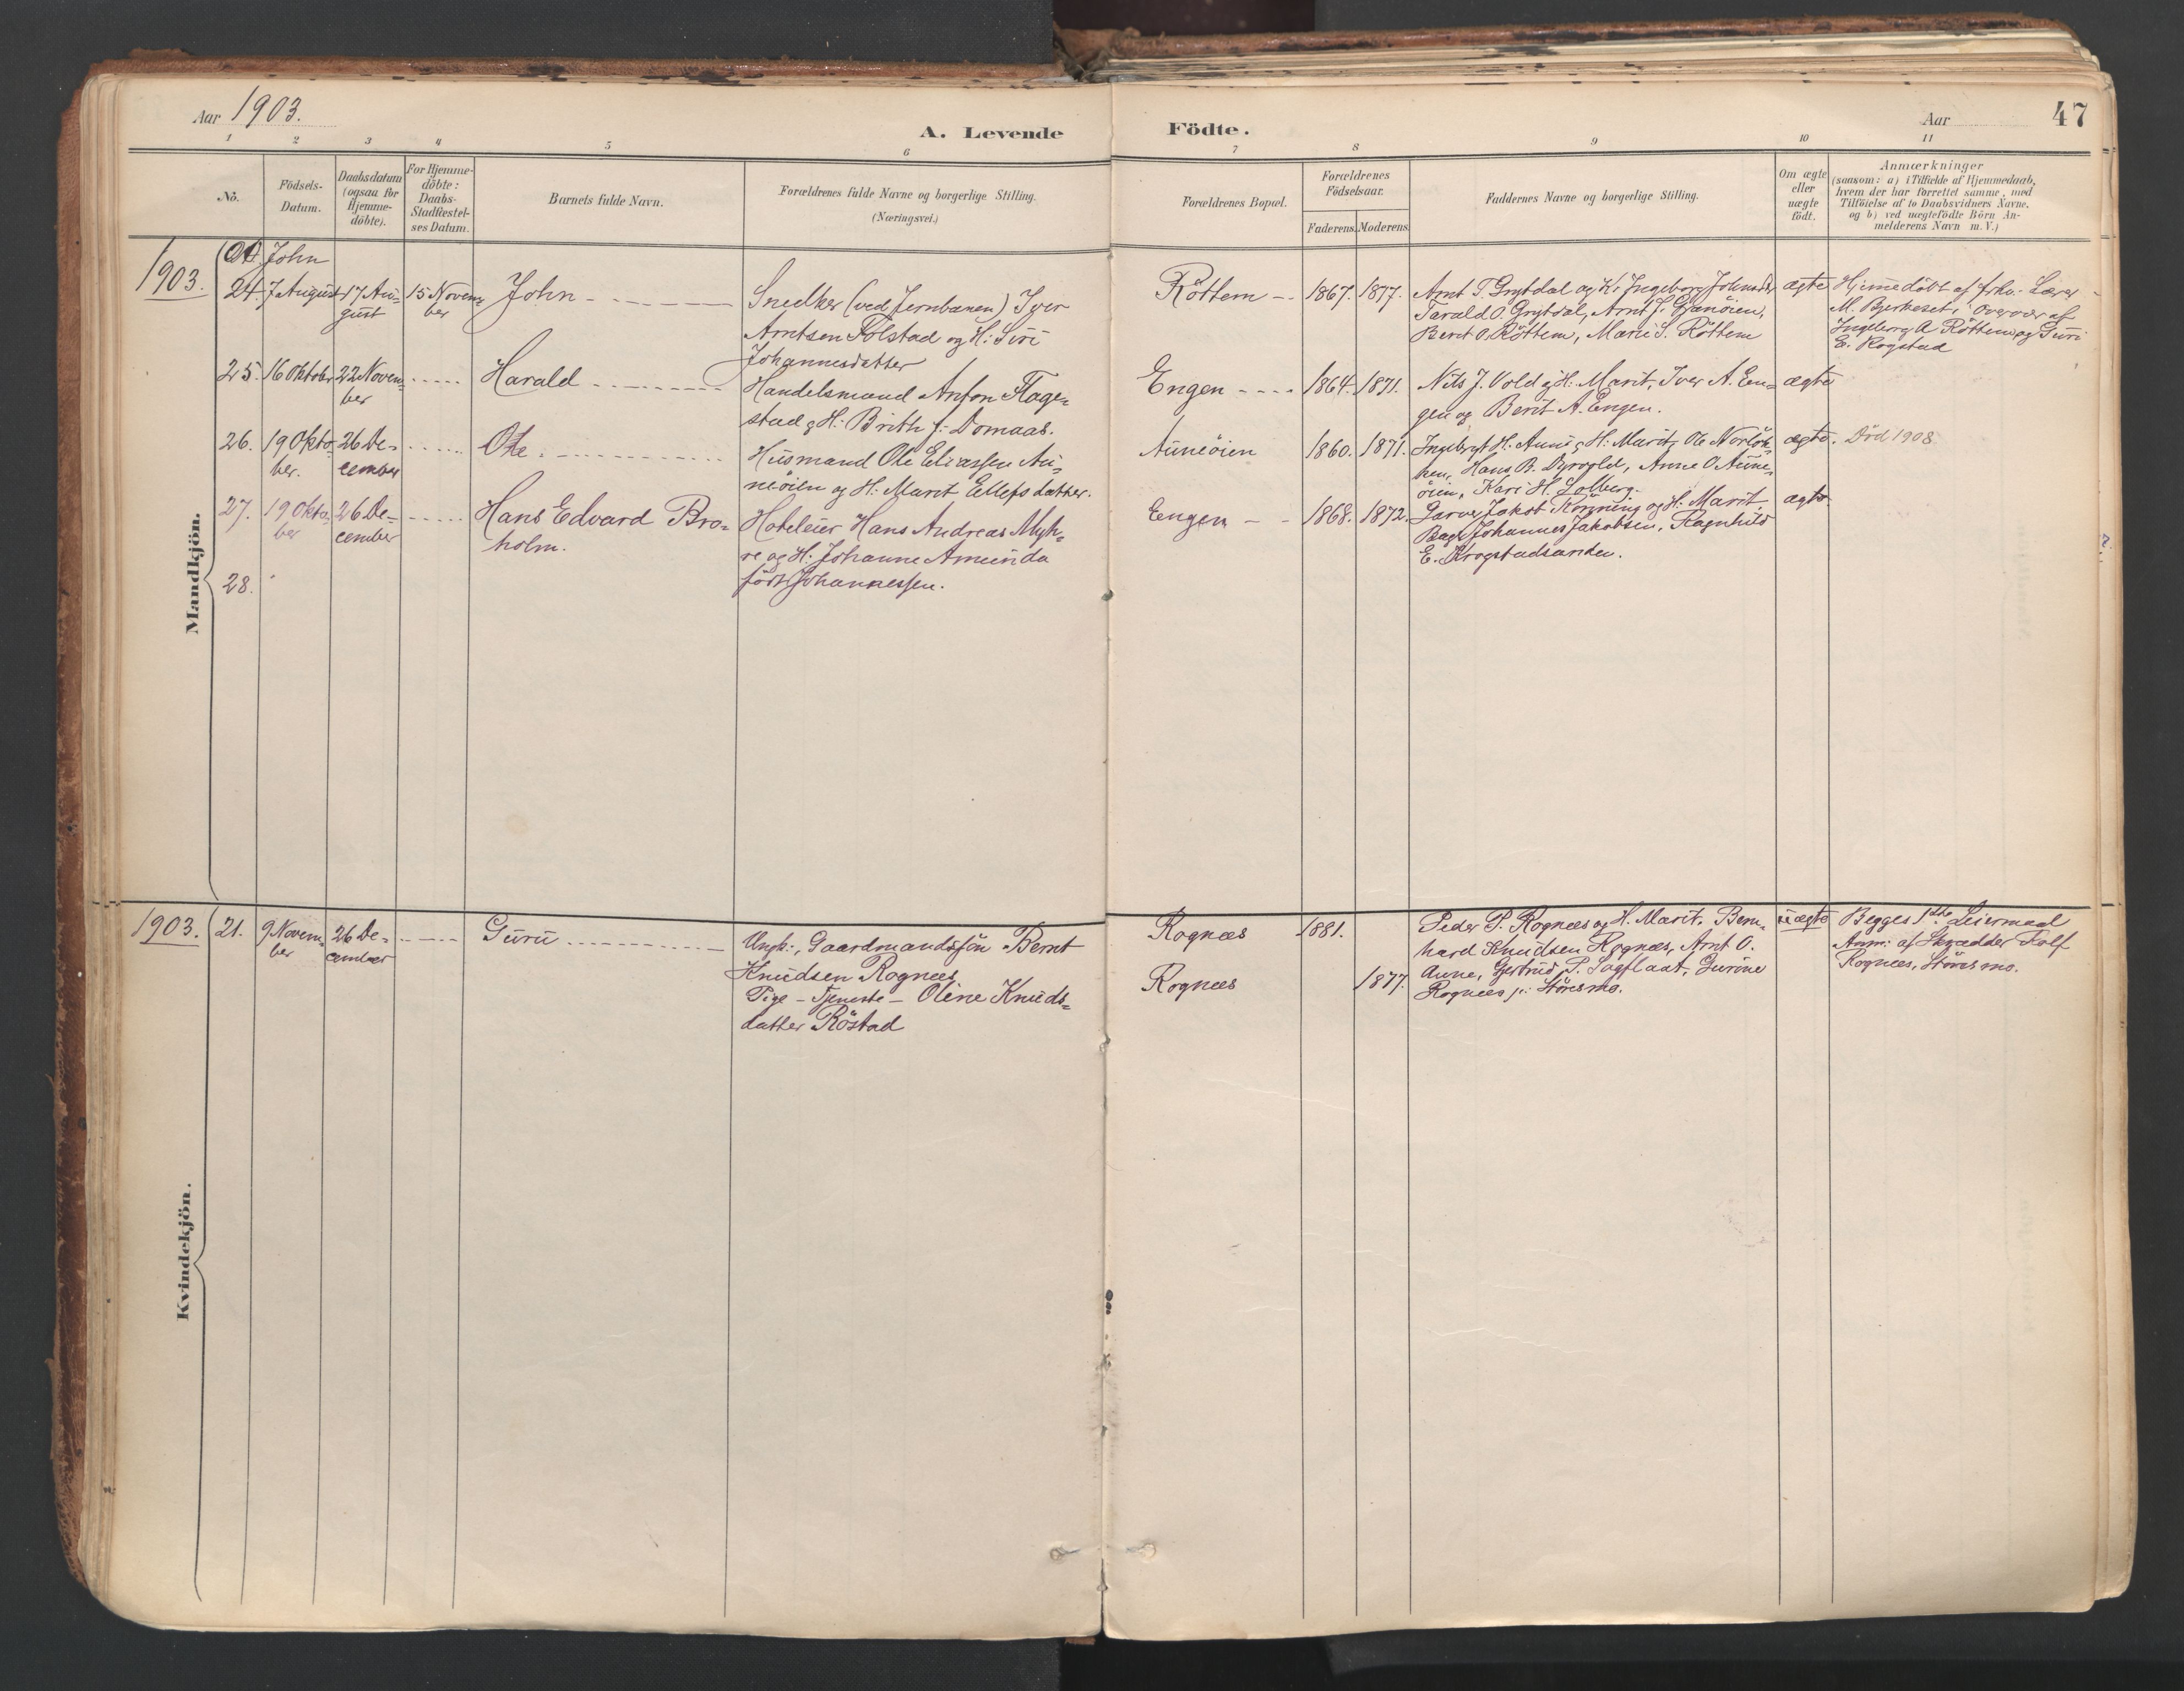 Aar 1903.
A. Levende Födte.
Aar
47
1 2 3 4 5 6 7 8 9 10 11
No.
Födsels-
Datum.
Daabsdatum
(ogsaa for
Hjemme-
döbte).
For Hjemme-
döbte:
Daabs-
Stadfæstel-
ses Datum.
Barnets fulde Navn.
Forældrenes fulde Navne og borgerlige Stilling.
(Næringsvei.)
Forældrenes Bopæl.
Forældrenes
Födselsaar.
Faderens.
Moderens.
Faddernes Navne og borgerlige Stilling.
Om ægte
eller
uægte
födt.
Anmærkninger
(saasom: a) i Tilfælde af Hjemmedaab,
hvem der har forrettet samme, med
Tilföielse af to Daabsvidners Navne,
og b) ved uægtefödte Börn An-
melderens Navn m. V.)
Mandkjön.
John
1903.
24. 7 August 17 Au-
gust
15 Novem-
ber
John
Snedker (ved Jernbanen) Iver
Arntsen Folstad og H: Siri
Johannesdatter
Röttem
1867. 1877.
Arnt T. Grytdal og K: Ingeborg Johnsdr
Tarald O. Grytdal, Arnt J. Granöien,
Berit O. Röttem, Marit S. Röttem
ægte
Hjemmedöbt af frhv. Lærer
M. Bjerkeset, i Overvær af
Ingeborg A Röttem og Guri
E. Rogstad
25. 16 Oktober 22 Novem-
ber
Harald
Handelsmand Anton Flage-
stad og H: Brith f: Domaas.
Engen
1864. 1871.
Nils J. Vold og H: Marit, Iver A. En-
gen og Berit A. Engen.
ægte
26. 19 Okto-
ber.
26 De-
cember
Ole
Husmand Ole Eliassen Au-
neöien og H: Marit Ellefsdatter.
Auneöien
1860. 1871.
Ingebrgt H. Aune og H: Marit, Ole Norlök-
ken, Hans B. Dyrvold, Anne O Aune-
öien, Kari H. Solberg.
ægte.
Död 1908.
27. 19 Okto-
ber
26 De-
cember
Hans Edvard Bro-
holm.
Hoteleier Hans Andreas Myh-
re og H: Johanne Amunda
född Johannessen.
Engen
1868. 1872.
Garver Jakob Rönning og H: Marit,
Bager Johannes Jakobsen, Ragnhild
E. Krogstadsanden.
ægte.
28.
Kvindekjön.
1903.
21. 9 Novem-
ber
26 De-
cember
Guru
Ungk:, Gaardmandssön Bernt
Knudsen Rognæs
Pige - Tjeneste - Oline Knuds-
datter Röstad
Rognæs
1881.
Rognæs
1877.
Peder P. Rognæs og H. Marit. Bern-
hard Knudsen Rognæs, Arnt O.
Aune, Gjertrud P. Sagflaat, Gurine
Rognæs p: Störesmo.
uægte
Begges 1ste Leiermaal
Anm: af Skrædder Rolf
Rognæs, Störesmo.